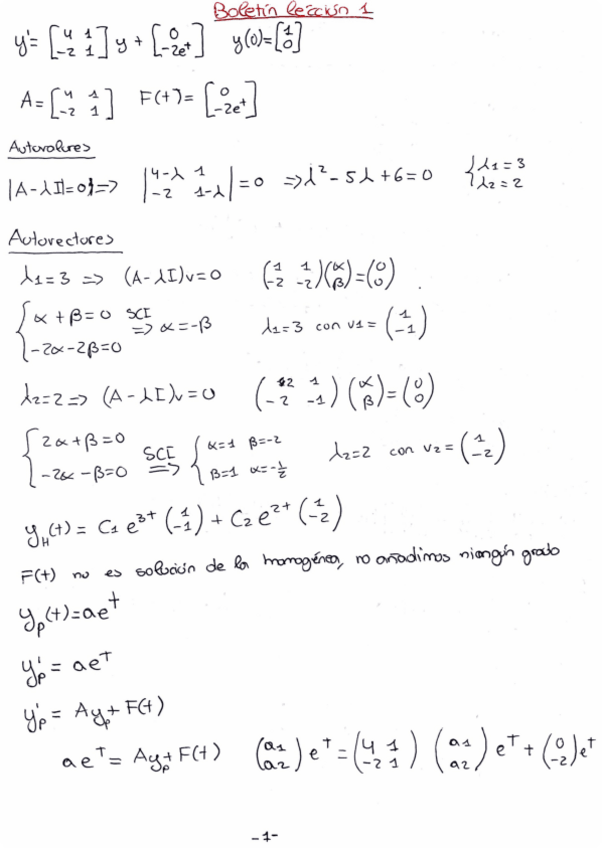 Boletín lección 1
y' = [4 1; -2 1] y + [0; -2e^t]   y(0) = [1; 0]
A = [4 1; -2 1]   F(t) = [0; -2e^t]
Autovalores
|A-λI|=0 => |4-λ 1; -2 1-λ| = 0 => λ² - 5λ + 6 = 0   { λ1 = 3; λ2 = 2
Autovectores
λ1 = 3 => (A-λI)v = 0   (1 1; -2 -2)(α; β) = (0; 0)
{ α + β = 0; -2α - 2β = 0   SCI => α = -β   λ1 = 3 con v1 = (1; -1)
λ2 = 2 => (A-λI)v = 0   (2 1; -2 -1)(α; β) = (0; 0)
{ 2α + β = 0; -2α - β = 0   SCI => { α = 1 β = -2; β = 1 α = -1/2   λ2 = 2 con v2 = (1; -2)
y_H(t) = C1 e^3t (1; -1) + C2 e^2t (1; -2)
F(t) no es solución de la homogénea, no añadimos ningún grado
y_p(t) = ae^t
y'_p = ae^t
y'_p = Ay_p + F(t)
ae^t = Ay_p + F(t)   (a1; a2) e^t = (4 1; -2 1) (a1; a2) e^t + (0; -2) e^t
-1-